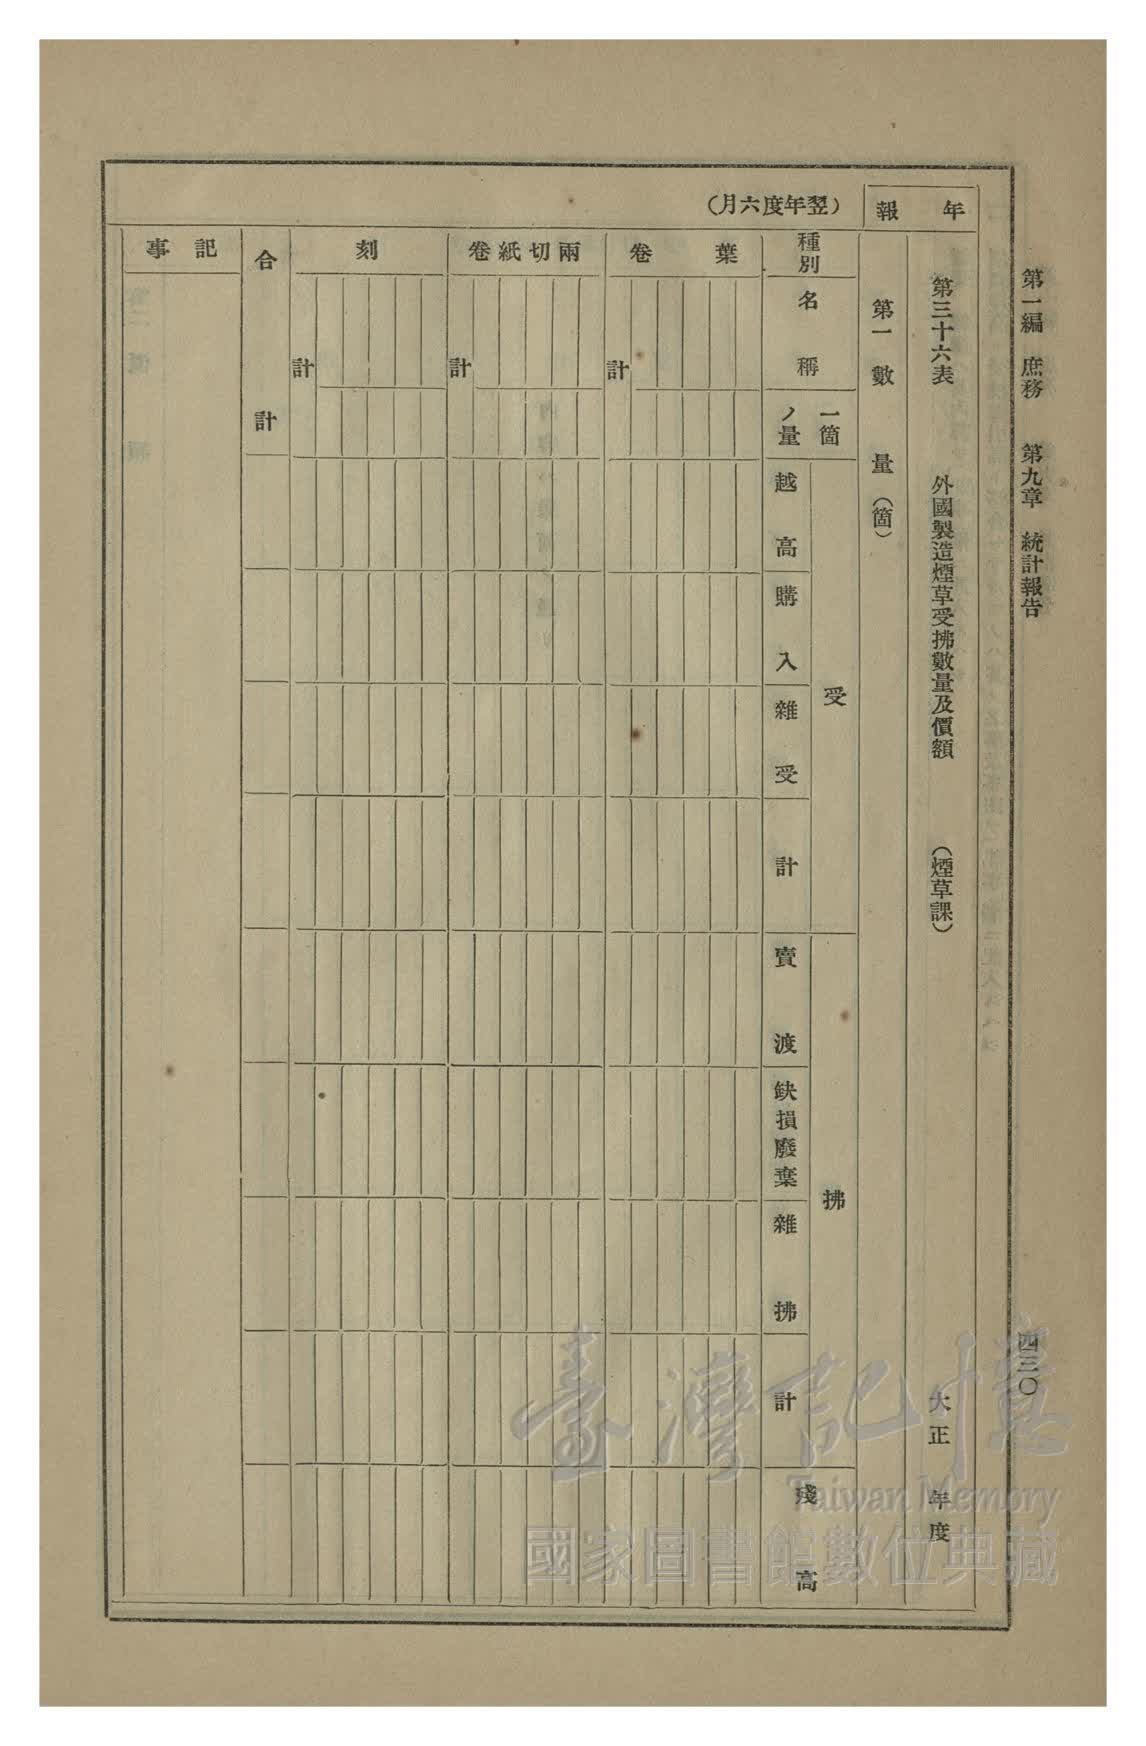 第一編 庶務 第九章 統計報告 四三〇
年報
(翌年度六月)
第三十六表 外國製造煙草受拂數量及價額 (煙草課) 大正 年度
第一 數量(箇)
種別
名稱
一箇ノ量
受
越高
購入
雜受
計
拂
賣渡
缺損廢棄
雜拂
計
殘高
葉卷
計
兩切紙卷
計
刻
計
合計
記事
臺灣記憶
Taiwan Memory
國家圖書館數位典藏